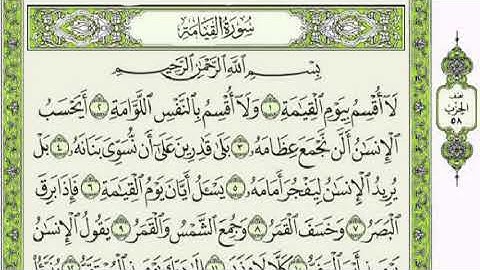 سُورَةُ القِيَامَةِ
بِسْمِ اللَّهِ الرَّحْمَٰنِ الرَّحِيمِ
لَآ أُقْسِمُ بِيَوْمِ ٱلْقِيَٰمَةِ ١ وَلَآ أُقْسِمُ بِٱلنَّفْسِ ٱللَّوَّامَةِ ٢ أَيَحْسَبُ
ٱلْإِنسَٰنُ أَلَّن نَّجْمَعَ عِظَامَهُۥ ٣ بَلَىٰ قَٰدِرِينَ عَلَىٰٓ أَن نُّسَوِّىَ بَنَانَهُۥ ٤ بَلْ
يُرِيدُ ٱلْإِنسَٰنُ لِيَفْجُرَ أَمَامَهُۥ ٥ يَسْـَٔلُ أَيَّانَ يَوْمُ ٱلْقِيَٰمَةِ ٦ فَإِذَا بَرِقَ
ٱلْبَصَرُ ٧ وَخَسَفَ ٱلْقَمَرُ ٨ وَجُمِعَ ٱلشَّمْسُ وَٱلْقَمَرُ ٩ يَقُولُ ٱلْإِنسَٰنُ
نصف
الحزب
٥٨